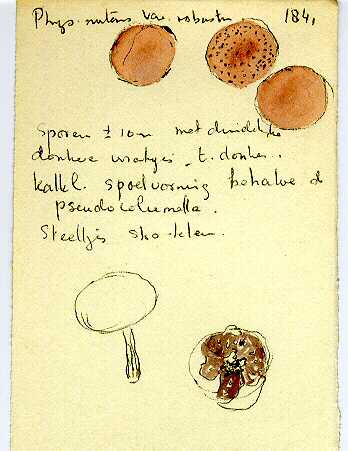 Phys. nutans var. robusta 1841
Sporen ± 10 m met duidelijke
donkere wratjes, t. donker.
kalkl. spoelvormig behalve d
pseudocolumella.
Steeltjes